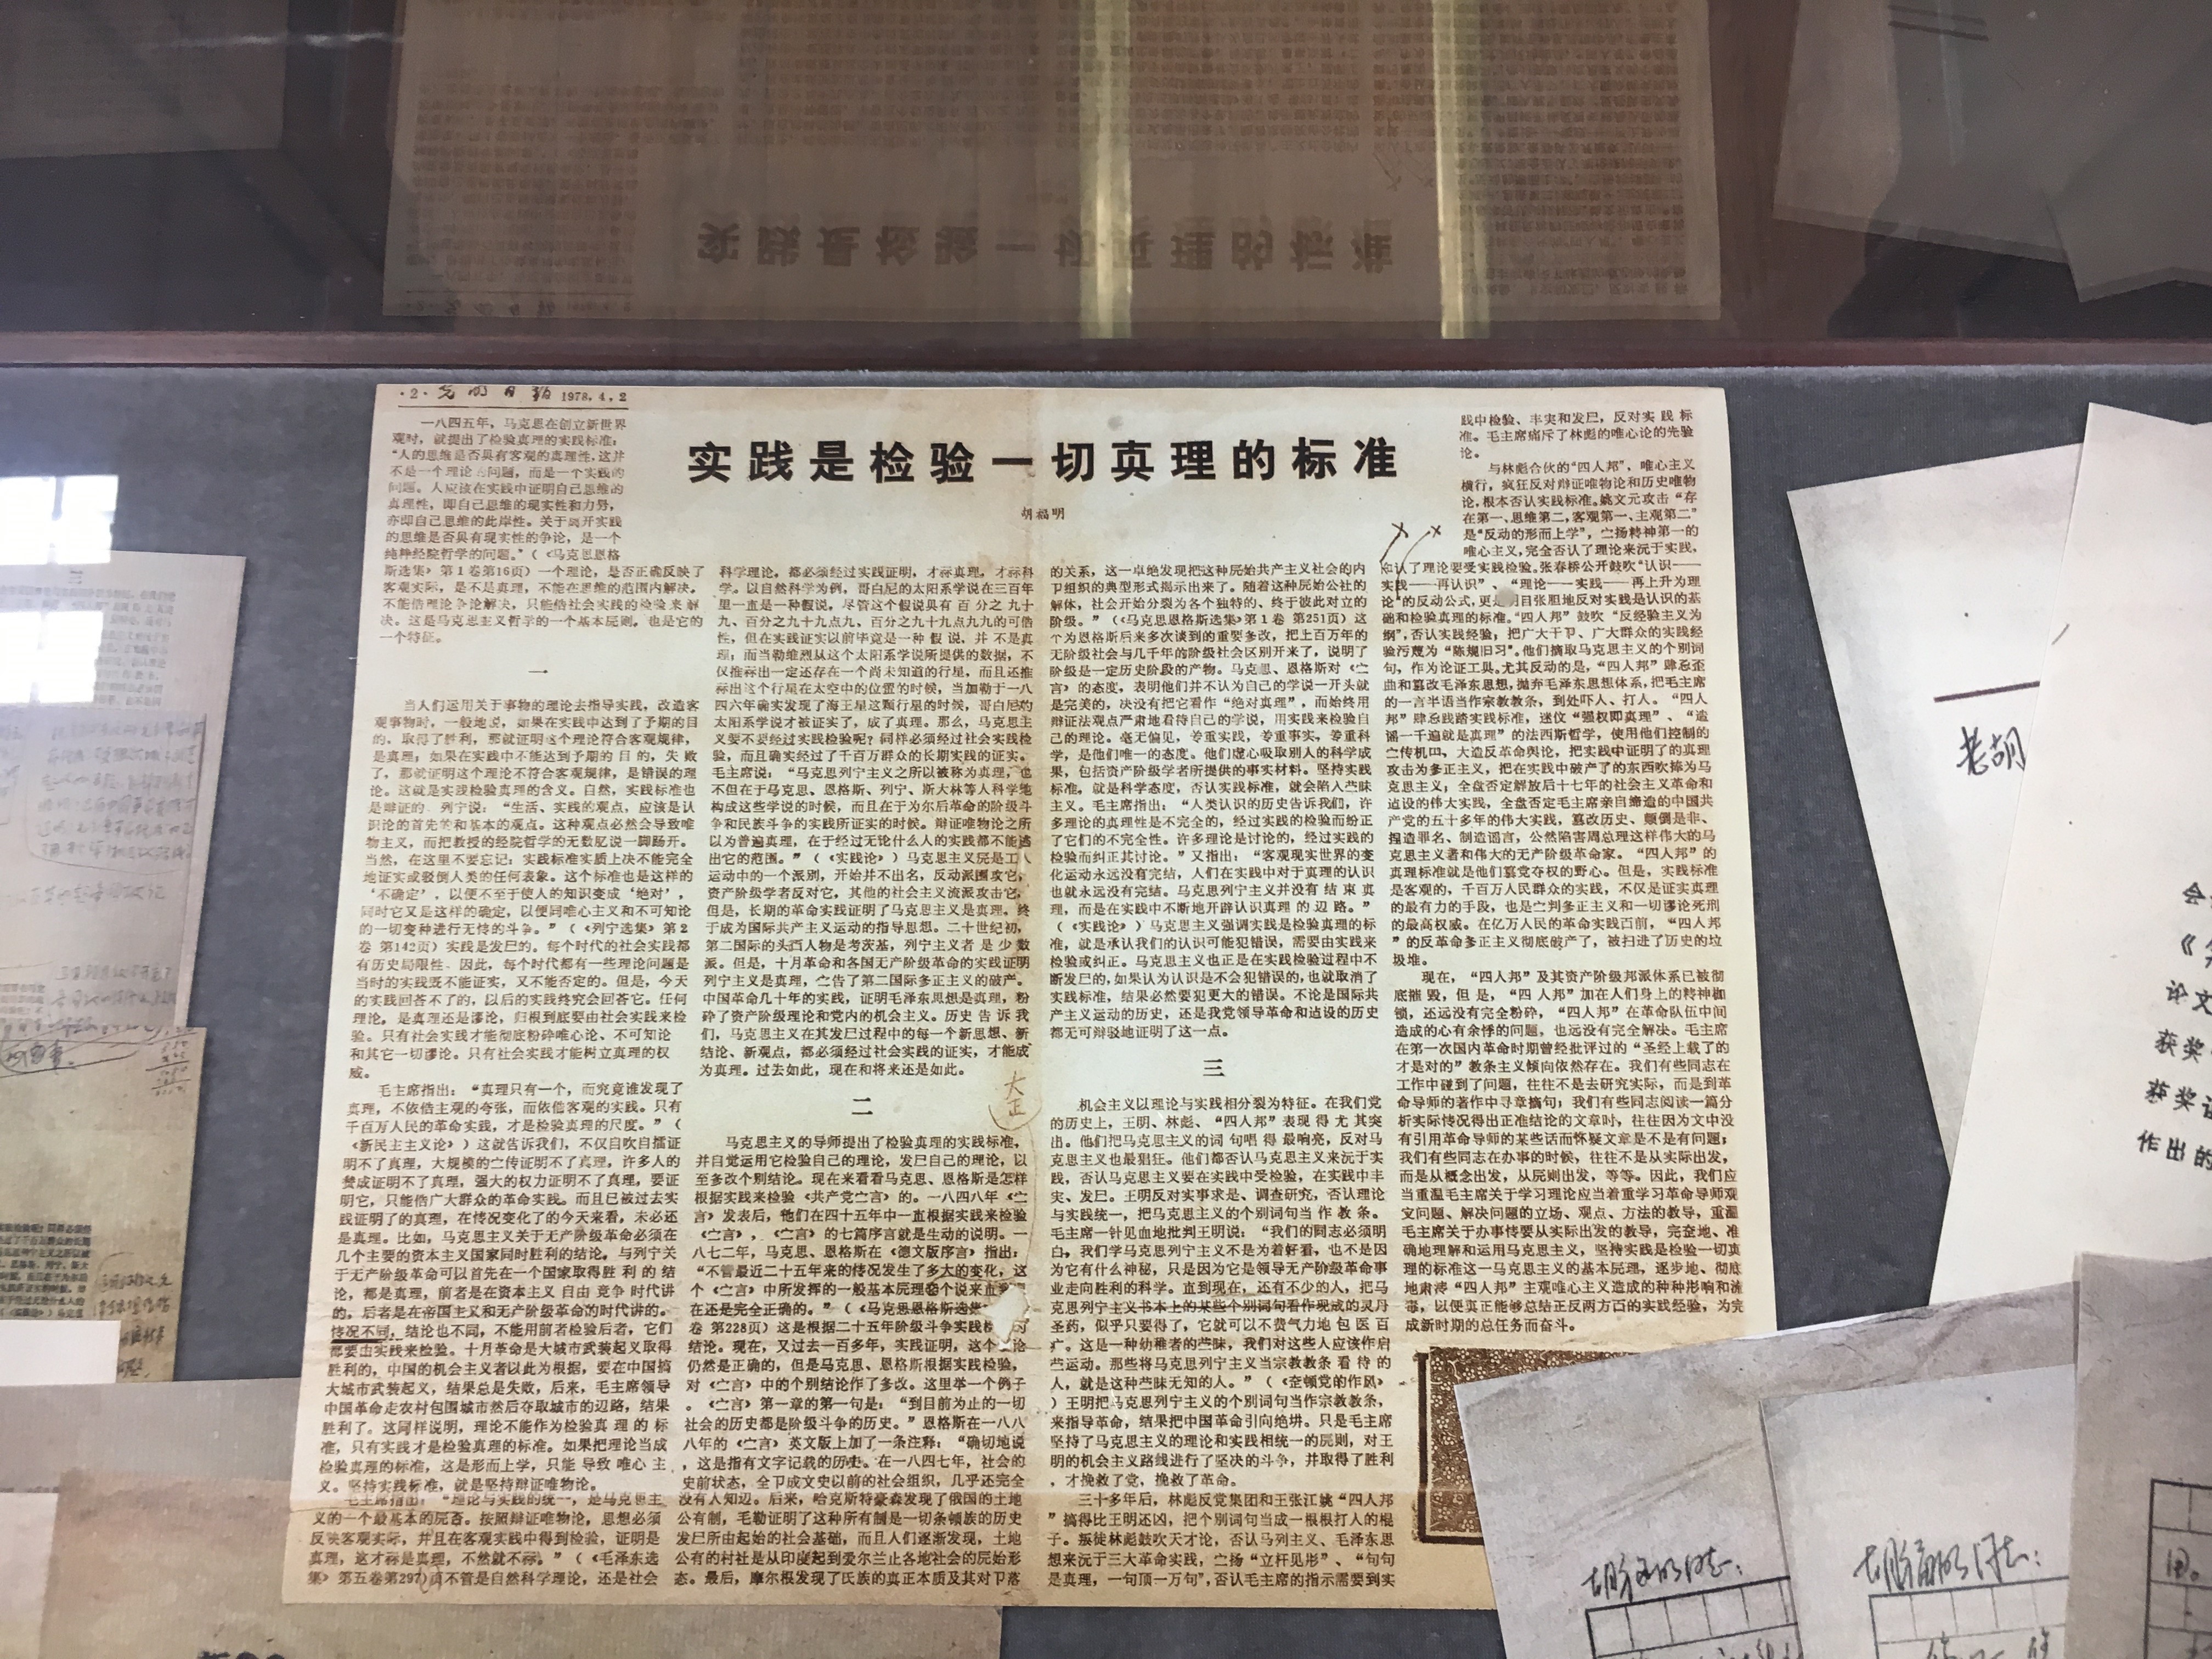 ·2· 光明日报 1978.4.2
实践是检验一切真理的标准
胡福明
一八四五年，马克思在创立新世界
观时，就提出了检验真理的实践标准：
“人的思维是否具有客观的真理性，这并
不是一个理论的问题，而是一个实践的
问题。人应该在实践中证明自己思维的
真理性，即自己思维的现实性和力量，
亦即自己思维的此岸性。关于离开实践
的思维是否具有现实性的争论，是一个
纯粹经院哲学的问题。”（《马克思恩格
斯选集》第1卷第16页）一个理论，是否正确反映了
客观实际，是不是真理，不能在思维的范围内解决，
不能借理论争论解决，只能借社会实践的检验来解
决。这是马克思主义哲学的一个基本原则，也是它的
一个特征。
一
当人们运用关于事物的理论去指导实践，改造客
观事物时，一般地说，如果在实践中达到了予期的目
的，取得了胜利，那就证明这个理论符合客观规律，
是真理；如果在实践中不能达到予期的目的，失败
了，那就证明这个理论不符合客观规律，是错误的理
论。这就是实践检验真理的含义。自然，实践标准也
是辩证的。列宁说：“生活、实践的观点，应该是认
识论的首先的和基本的观点。这种观点必然会导致唯
物主义，而把教授的经院哲学的无数胡说一脚踢开。
当然，在这里不要忘记：实践标准实质上决不能完全
地证实或驳倒人类的任何表象。这个标准也是这样的
‘不确定’，以便不至于使人的知识变成‘绝对’，
同时它又是这样的确定，以便同唯心主义和不可知论
的一切变种进行无情的斗争。”（《列宁选集》第2
卷 第142页）实践是发展的。每个时代的社会实践都
有历史局限性、因此，每个时代都有一些理论问题是
当时的实践既不能证实，又不能否定的。但是，今天
的实践回答不了的，以后的实践终究会回答它。任何
理论，是真理还是谬论，归根到底要由社会实践来检
验。只有社会实践才能彻底粉碎唯心论、不可知论
和其它一切谬论。只有社会实践才能树立真理的权
威。
毛主席指出：“真理只有一个，而究竟谁发现了
真理，不依借主观的夸张，而依借客观的实践。只有
千百万人民的革命实践，才是检验真理的尺度。”（
《新民主主义论》）这就告诉我们，不仅自吹自擂证
明不了真理，大规模的宣传证明不了真理，许多人的
赞成证明不了真理，强大的权力证明不了真理，要证
明它，只能借广大群众的革命实践。而且已被过去实
践证明了的真理，在情况变化了的今天来看，未必还
是真理。比如，马克思主义关于无产阶级革命必须在
几个主要的资本主义国家同时胜利的结论，与列宁关
于无产阶级革命可以首先在一个国家取得胜利的结
论，都是真理，前者是在资本主义自由竞争时代讲
的，后者是在帝国主义和无产阶级革命的时代讲的。
情况不同，结论也不同，不能用前者检验后者，它们
都要由实践来检验。十月革命是大城市武装起义取得
胜利的，中国的机会主义者以此为根据，要在中国搞
大城市武装起义，结果总是失败，后来，毛主席领导
中国革命走农村包围城市然后夺取城市的道路，结果
胜利了。这同样说明，理论不能作为检验真理的标
准，只有实践才是检验真理的标准。如果把理论当成
检验真理的标准，这是形而上学，只能导致唯心主
义。坚持实践标准，就是坚持辩证唯物论。
毛主席指出：“理论与实践的统一，是马克思主
义的一个最基本的原则。按照辩证唯物论，思想必须
反映客观实际，并且在客观实践中得到检验，证明是
真理，这才算是真理，不然就不算。”（《毛泽东选
集》第五卷第297页）不管是自然科学理论，还是社会
科学理论，都必须经过实践证明，才算真理，才算科
学。以自然科学为例，哥白尼的太阳系学说在三百年
里一直是一种假说，尽管这个假说具有百分之九十
九、百分之九十九点九、百分之九十九点九九的可借
性，但在实践证实以前毕竟是一种假说，并不是真
理；而当勒维烈从这个太阳系学说所提供的数据，不
仅推算出一定还存在一个尚未知道的行星，而且还推
算出这个行星在太空中的位置的时候，当加勒于一八
四六年确实发现了海王星这颗行星的时候，哥白尼的
太阳系学说才被证实了，成了真理。那么，马克思主
义要不要经过实践检验呢？同样必须经过社会实践检
验，而且确实经过了千百万群众的长期实践的证实。
毛主席说：“马克思列宁主义之所以被称为真理，也
不但在于马克思、恩格斯、列宁、斯大林等人科学地
构成这些学说的时候，而且在于为尔后革命的阶级斗
争和民族斗争的实践所证实的时候。辩证唯物论之所
以为普遍真理，在于经过无论什么人的实践都不能逃
出它的范围。”（《实践论》）马克思主义原是工人
运动中的一个派别，开始并不出名，反动派围攻它，
资产阶级学者反对它，其他的社会主义流派攻击它，
但是，长期的革命实践证明了马克思主义是真理，终
于成为国际共产主义运动的指导思想。二十世纪初，
第二国际的头面人物是考茨基，列宁主义者是少数
派。但是，十月革命和各国无产阶级革命的实践证明
列宁主义是真理，宣告了第二国际修正主义的破产。
中国革命几十年的实践，证明毛泽东思想是真理，粉
碎了资产阶级理论和党内的机会主义。历史告诉我
们，马克思主义在其发展过程中的每一个新思想、新
结论、新观点，都必须经过社会实践的证实，才能成
为真理。过去如此，现在和将来还是如此。
大正
二
马克思主义的导师提出了检验真理的实践标准，
并自觉运用它检验自己的理论，发展自己的理论，以
至修改个别结论。现在来看看马克思、恩格斯是怎样
根据实践来检验《共产党宣言》的。一八四八年《宣
言》发表后，他们在四十五年中一直根据实践来检验
《宣言》，《宣言》的七篇序言就是生动的说明。一
八七二年，马克思、恩格斯在《德文版序言》指出：
“不管最近二十五年来的情况发生了多大的变化，这
个《宣言》中所发挥的一般基本原理整个说来直到现
在还是完全正确的。”（《马克思恩格斯选集
卷 第228页）这是根据二十五年阶级斗争实践
结论。现在，又过去一百多年，实践证明，这个 论
仍然是正确的，但是马克思、恩格斯根据实践检验，
对《宣言》中的个别结论作了修改。这里举一个例子
。《宣言》第一章的第一句是：“到目前为止的一切
社会的历史都是阶级斗争的历史。”恩格斯在一八八
八年的《宣言》英文版上加了一条注释：“确切地说
，这是指有文字记载的历史。在一八四七年，社会的
史前状态，全部成文史以前的社会组织，几乎还完全
没有人知道。后来，哈克斯特豪森发现了俄国的土地
公有制，毛勒证明了这种所有制是一切条顿族的历史
发展所由起始的社会基础，而且人们逐渐发现，土地
公有的村社是从印度起到爱尔兰止各地社会的原始形
态。最后，摩尔根发现了氏族的真正本质及其对部落
的关系，这一卓绝发现把这种原始共产主义社会的内
部组织的典型形式揭示出来了。随着这种原始公社的
解体，社会开始分裂为各个独特的、终于彼此对立的
阶级。”（《马克思恩格斯选集》第1卷 第251页）这
个为恩格斯后来多次谈到的重要修改，把上百万年的
无阶级社会与几千年的阶级社会区别开来了，说明了
阶级是一定历史阶段的产物。马克思、恩格斯对《宣
言》的态度，表明他们并不认为自己的学说一开头就
是完美的，决没有把它看作“绝对真理”，而始终用
辩证法观点严肃地看待自己的学说，用实践来检验自
己的理论。毫无偏见，尊重实践，尊重事实，尊重科
学，是他们唯一的态度。他们虚心吸取别人的科学成
果，包括资产阶级学者所提供的事实材料。坚持实践
标准。就是科学态度，否认实践标准，就会陷入蒙昧
主义。毛主席指出：“人类认识的历史告诉我们，许
多理论的真理性是不完全的，经过实践的检验而纠正
了它们的不完全性。许多理论是讨论的，经过实践的
检验而纠正其讨论。”又指出：“客观现实世界的变
化运动永远没有完结，人们在实践中对于真理的认识
也就永远没有完结。马克思列宁主义并没有结束真
理，而是在实践中不断地开辟认识真理的道路。”
（《实践论》）马克思主义强调实践是检验真理的标
准，就是承认我们的认识可能犯错误，需要由实践来
检验或纠正。马克思主义也正是在实践检验过程中不
断发展的，如果认为认识是不会犯错误的，也就取消了
实践标准，结果必然要犯更大的错误。不论是国际共
产主义运动的历史，还是我党领导革命和建设的历史
都无可辩驳地证明了这一点。
三
机会主义以理论与实践相分裂为特征。在我们党
的历史上，王明、林彪、“四人邦”表现得尤其突
出。他们把马克思主义的词句唱得最响亮，反对马
克思主义也最猖狂。他们都否认马克思主义来源于实
践，否认马克思主义要在实践中受检验，在实践中丰
实、发展。王明反对实事求是、调查研究，否认理论
与实践统一，把马克思主义的个别词句当作教条。
毛主席一针见血地批判王明说：“我们的同志必须明
白，我们学马克思列宁主义不是为着好看，也不是因
为它有什么神秘，只是因为它是领导无产阶级革命事
业走向胜利的科学。直到现在，还有不少的人，把马
克思列宁主义书本上的某些个别词句看作现成的灵丹
圣药，似乎只要得了，它就可以不费气力地包医百
病。这是一种幼稚者的蒙昧，我们对这些人应该作启
蒙运动。那些将马克思列宁主义当宗教教条看待的
人，就是这种蒙昧无知的人。”（《整顿党的作风》
）王明把马克思主义的个别词句当作宗教教条，
来指导革命，结果把中国革命引向绝境。只是毛主席
坚持了马克思主义的理论和实践相统一的原则，对王
明的机会主义路线进行了坚决的斗争，并取得了胜利
，才挽救了党，挽救了革命。
三十多年后，林彪反党集团和王张江姚“四人邦
”搞得比王明还凶，把个别词句当成一根根打人的棍
子。叛徒林彪鼓吹天才论，否认马列主义、毛泽东思
想来源于三大革命实践，宣扬“立杆见影”、“句句
是真理，一句顶一万句”，否认毛主席的指示需要到实
践中检验、丰实和发展，反对实践标
准。毛主席痛斥了林彪的唯心论的先验
论。
与林彪合伙的“四人邦”，唯心主义
横行，疯狂反对辩证唯物论和历史唯物
论，根本否认实践标准。姚文元攻击“存
在第一、思维第二，客观第一、主观第二”
是“反动的形而上学”，宣扬精神第一的
唯心主义，完全否认了理论来源于实践，
否认了理论要受实践检验。张春桥公开鼓吹“认识——
实践——再认识”、“理论——实践——再上升为理
论”的反动公式，更是明目张胆地反对实践是认识的基
础和检验真理的标准。“四人邦”鼓吹“反经验主义为
纲”，否认实践经验；把广大干部、广大群众的实践经
验污蔑为“陈规旧习”。他们摘取马克思主义的个别词
句，作为论证工具。尤其反动的是，“四人邦”肆意歪
曲和篡改毛泽东思想，抛弃毛泽东思想体系，把毛主席
的一言半语当作宗教教条，到处吓人、打人。“四人
邦”肆意践踏实践标准，迷信“强权即真理”、“造
谣一千遍就是真理”的法西斯哲学，使用他们控制的
宣传机器，大造反革命舆论，把实践中证明了的真理
攻击为修正主义，把在实践中破产了的东西吹捧为马
克思主义；全盘否定解放后十七年的社会主义革命和
建设的伟大实践，全盘否定毛主席亲自缔造的中国共
产党的五十多年的伟大实践，篡改历史、颠倒是非、
捏造罪名、制造谣言，公然陷害周总理这样伟大的马
克思主义者和伟大的无产阶级革命家。“四人邦”的
真理标准就是他们篡党夺权的野心。但是，实践标准
是客观的，千百万人民群众的实践，不仅是证实真理
的最有力的手段，也是宣判修正主义和一切谬论死刑
的最高权威。在亿万人民的革命实践面前，“四人邦
”的反革命修正主义彻底破产了，被扫进了历史的垃
圾堆。
现在，“四人邦”及其资产阶级邦派体系已被彻
底摧毁，但是，“四人邦”加在人们身上的精神枷
锁，还远没有完全粉碎，“四人邦”在革命队伍中间
造成的心有余悸的问题，也远没有完全解决。毛主席
在第一次国内革命时期曾经批评过的“圣经上载了的
才是对的”教条主义倾向依然存在。我们有些同志在
工作中碰到了问题，往往不是去研究实际，而是到革
命导师的著作中寻章摘句；我们有些同志阅读一篇分
析实际情况得出正准结论的文章时，往往因为文中没
有引用革命导师的某些话而怀疑文章是不是有问题；
我们有些同志在办事的时候，往往不是从实际出发，
而是从概念出发，从原则出发，等等。因此，我们应
当重温毛主席关于学习理论应当着重学习革命导师观
察问题、解决问题的立场、观点、方法的教导，重温
毛主席关于办事情要从实际出发的教导，完整地、准
确地理解和运用马克思主义，坚持实践是检验一切真
理的标准这一马克思主义的基本原理，逐步地、彻底
地肃清“四人邦”主观唯心主义造成的种种影响和流
毒，以便真正能够总结正反两方面的实践经验，为完
成新时期的总任务而奋斗。
老胡
论文
获奖
获奖
作出的
胡福明同志：
胡福明同志：